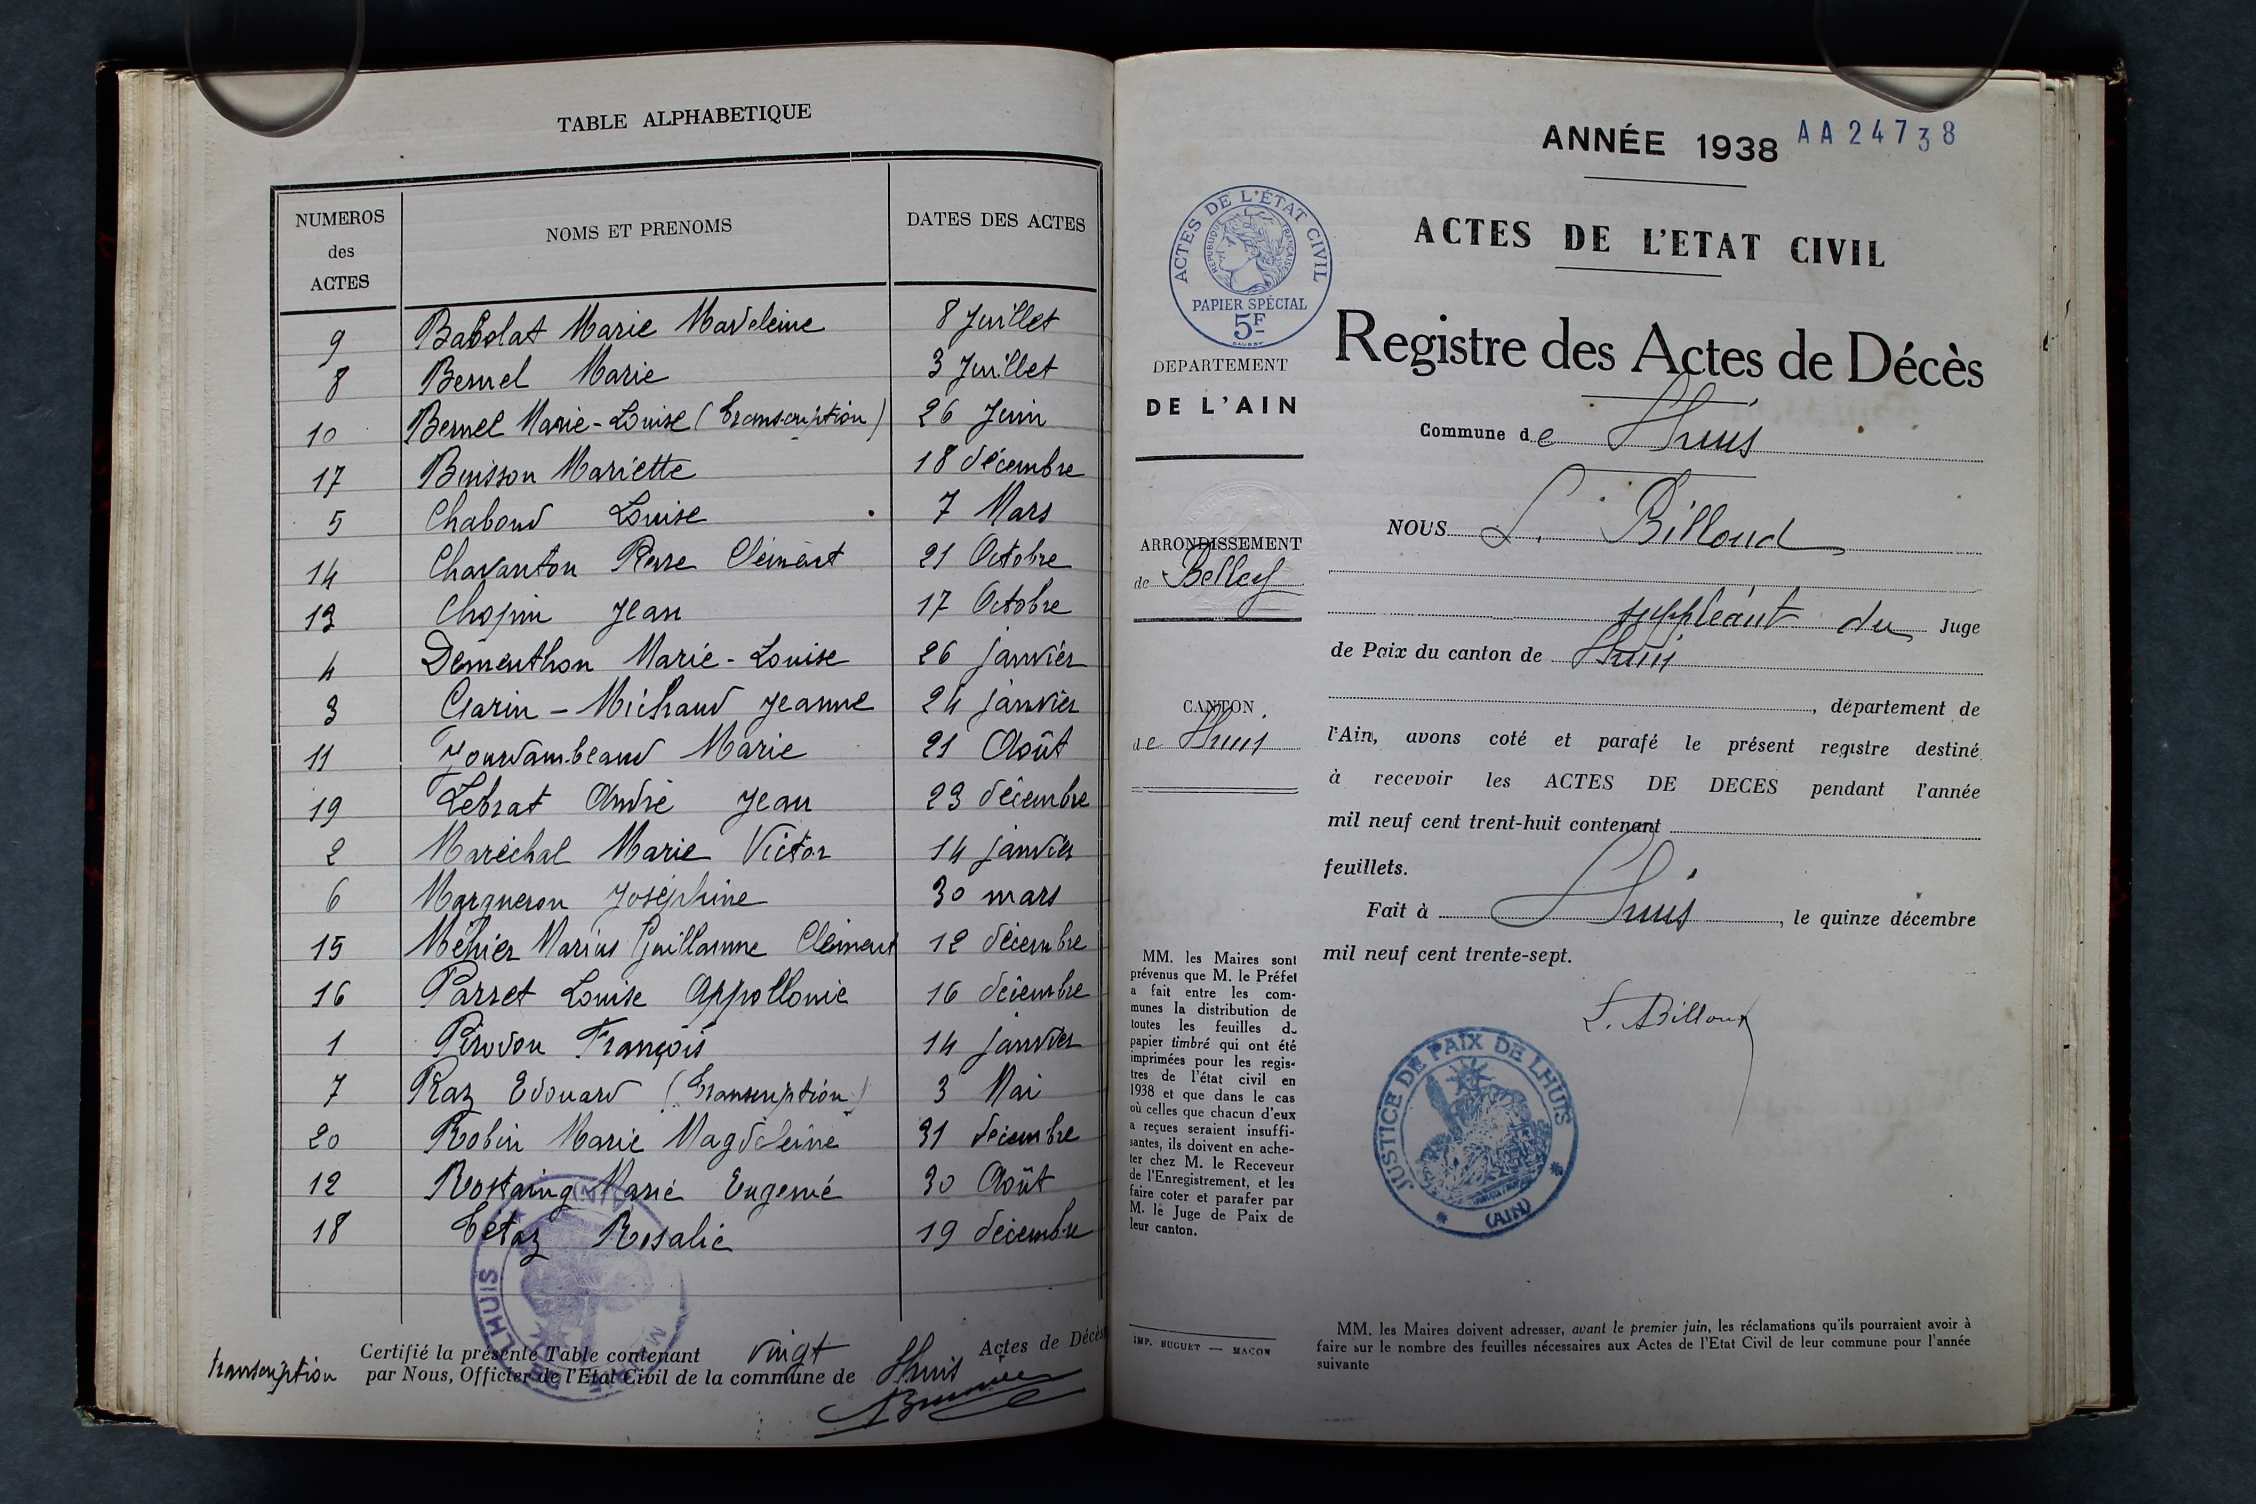 TABLE ALPHABETIQUE
NUMEROS des ACTES NOMS ET PRENOMS DATES DES ACTES
9 Babolat Marie Madeleine 8 Juillet
8 Bernel Marie 3 Juillet
10 Bernel Marie-Louise (Transcription) 26 Juin
17 Buisson Mariette 18 décembre
5 Chaboud Louise 7 Mars
14 Chavanton Pierre Clément 21 Octobre
13 Chopin Jean 17 Octobre
4 Dementhon Marie-Louise 26 janvier
3 Garin-Michaud Jeanne 24 janvier
11 Jourdam-beaud Marie 21 Août
19 Lebrat André Jean 23 décembre
2 Maréchal Marie Victor 14 janvier
6 Margueron Joséphine 30 mars
15 Méhier Marius Guillaume Clément 12 décembre
16 Parret Louise Appollonie 16 décembre
1 Pirodon François 14 janvier
7 Raz Edouard (Transcription) 3 Mai
20 Robin Marie Magdeleine 31 décembre
12 Rostaing Marie Eugenie 30 Août
18 Tetaz Rosalie 19 décembre
Certifié la présente Table contenant vingt Actes de Décès
transcription par Nous, Officier de l'Etat Civil de la commune de Lhuis
LHUIS
(AIN)
ANNÉE 1938 AA24738
ACTES DE L'ETAT CIVIL
ACTES DE L'ÉTAT CIVIL
REPUBLIQUE FRANÇAISE
PAPIER SPÉCIAL
5F
Registre des Actes de Décès
DEPARTEMENT
DE L'AIN
Commune de Lhuis
NOUS L. Billoud
ARRONDISSEMENT
de Belley
suppléant du Juge
de Paix du canton de Lhuis
, département de
CANTON
de Lhuis
l'Ain, avons coté et parafé le présent registre destiné
à recevoir les ACTES DE DECES pendant l'année
mil neuf cent trent-huit contenant
feuillets.
Fait à Lhuis, le quinze décembre
mil neuf cent trente-sept.
L. Billoud
JUSTICE DE PAIX DE LHUIS
* (AIN) *
MM. les Maires sont
prévenus que M. le Préfet
a fait entre les com-
munes la distribution de
toutes les feuilles de
papier timbré qui ont été
imprimées pour les regis-
tres de l'état civil en
1938 et que dans le cas
où celles que chacun d'eux
a reçues seraient insuffi-
santes, ils doivent en ache-
ter chez M. le Receveur
de l'Enregistrement, et les
faire coter et parafer par
M. le Juge de Paix de
leur canton.
IMP. BUGUET — MACON
MM. les Maires doivent adresser, avant le premier juin, les réclamations qu'ils pourraient avoir à
faire sur le nombre des feuilles nécessaires aux Actes de l'Etat Civil de leur commune pour l'année
suivante